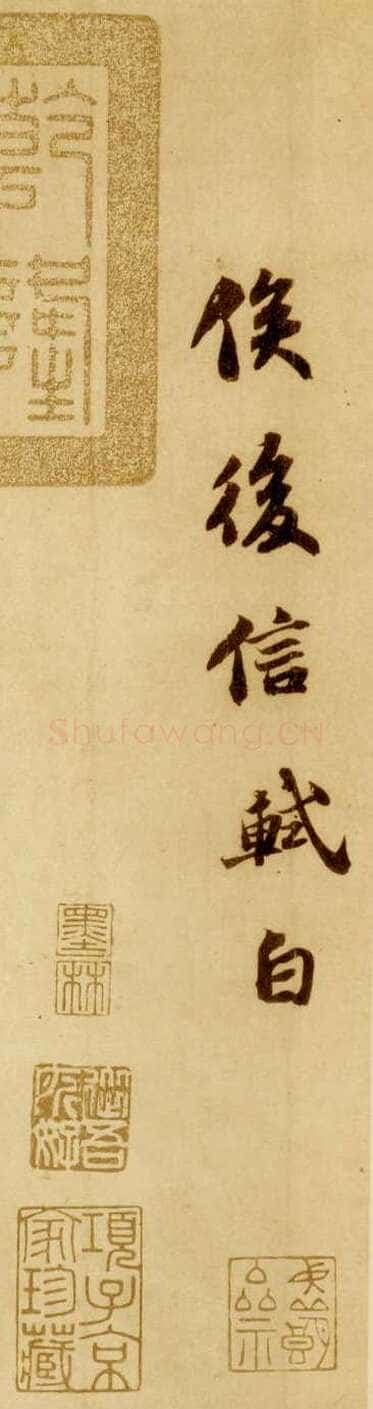 俟後信軾白
Shufawang.CN
乾隆
墨林
項子京家珍藏